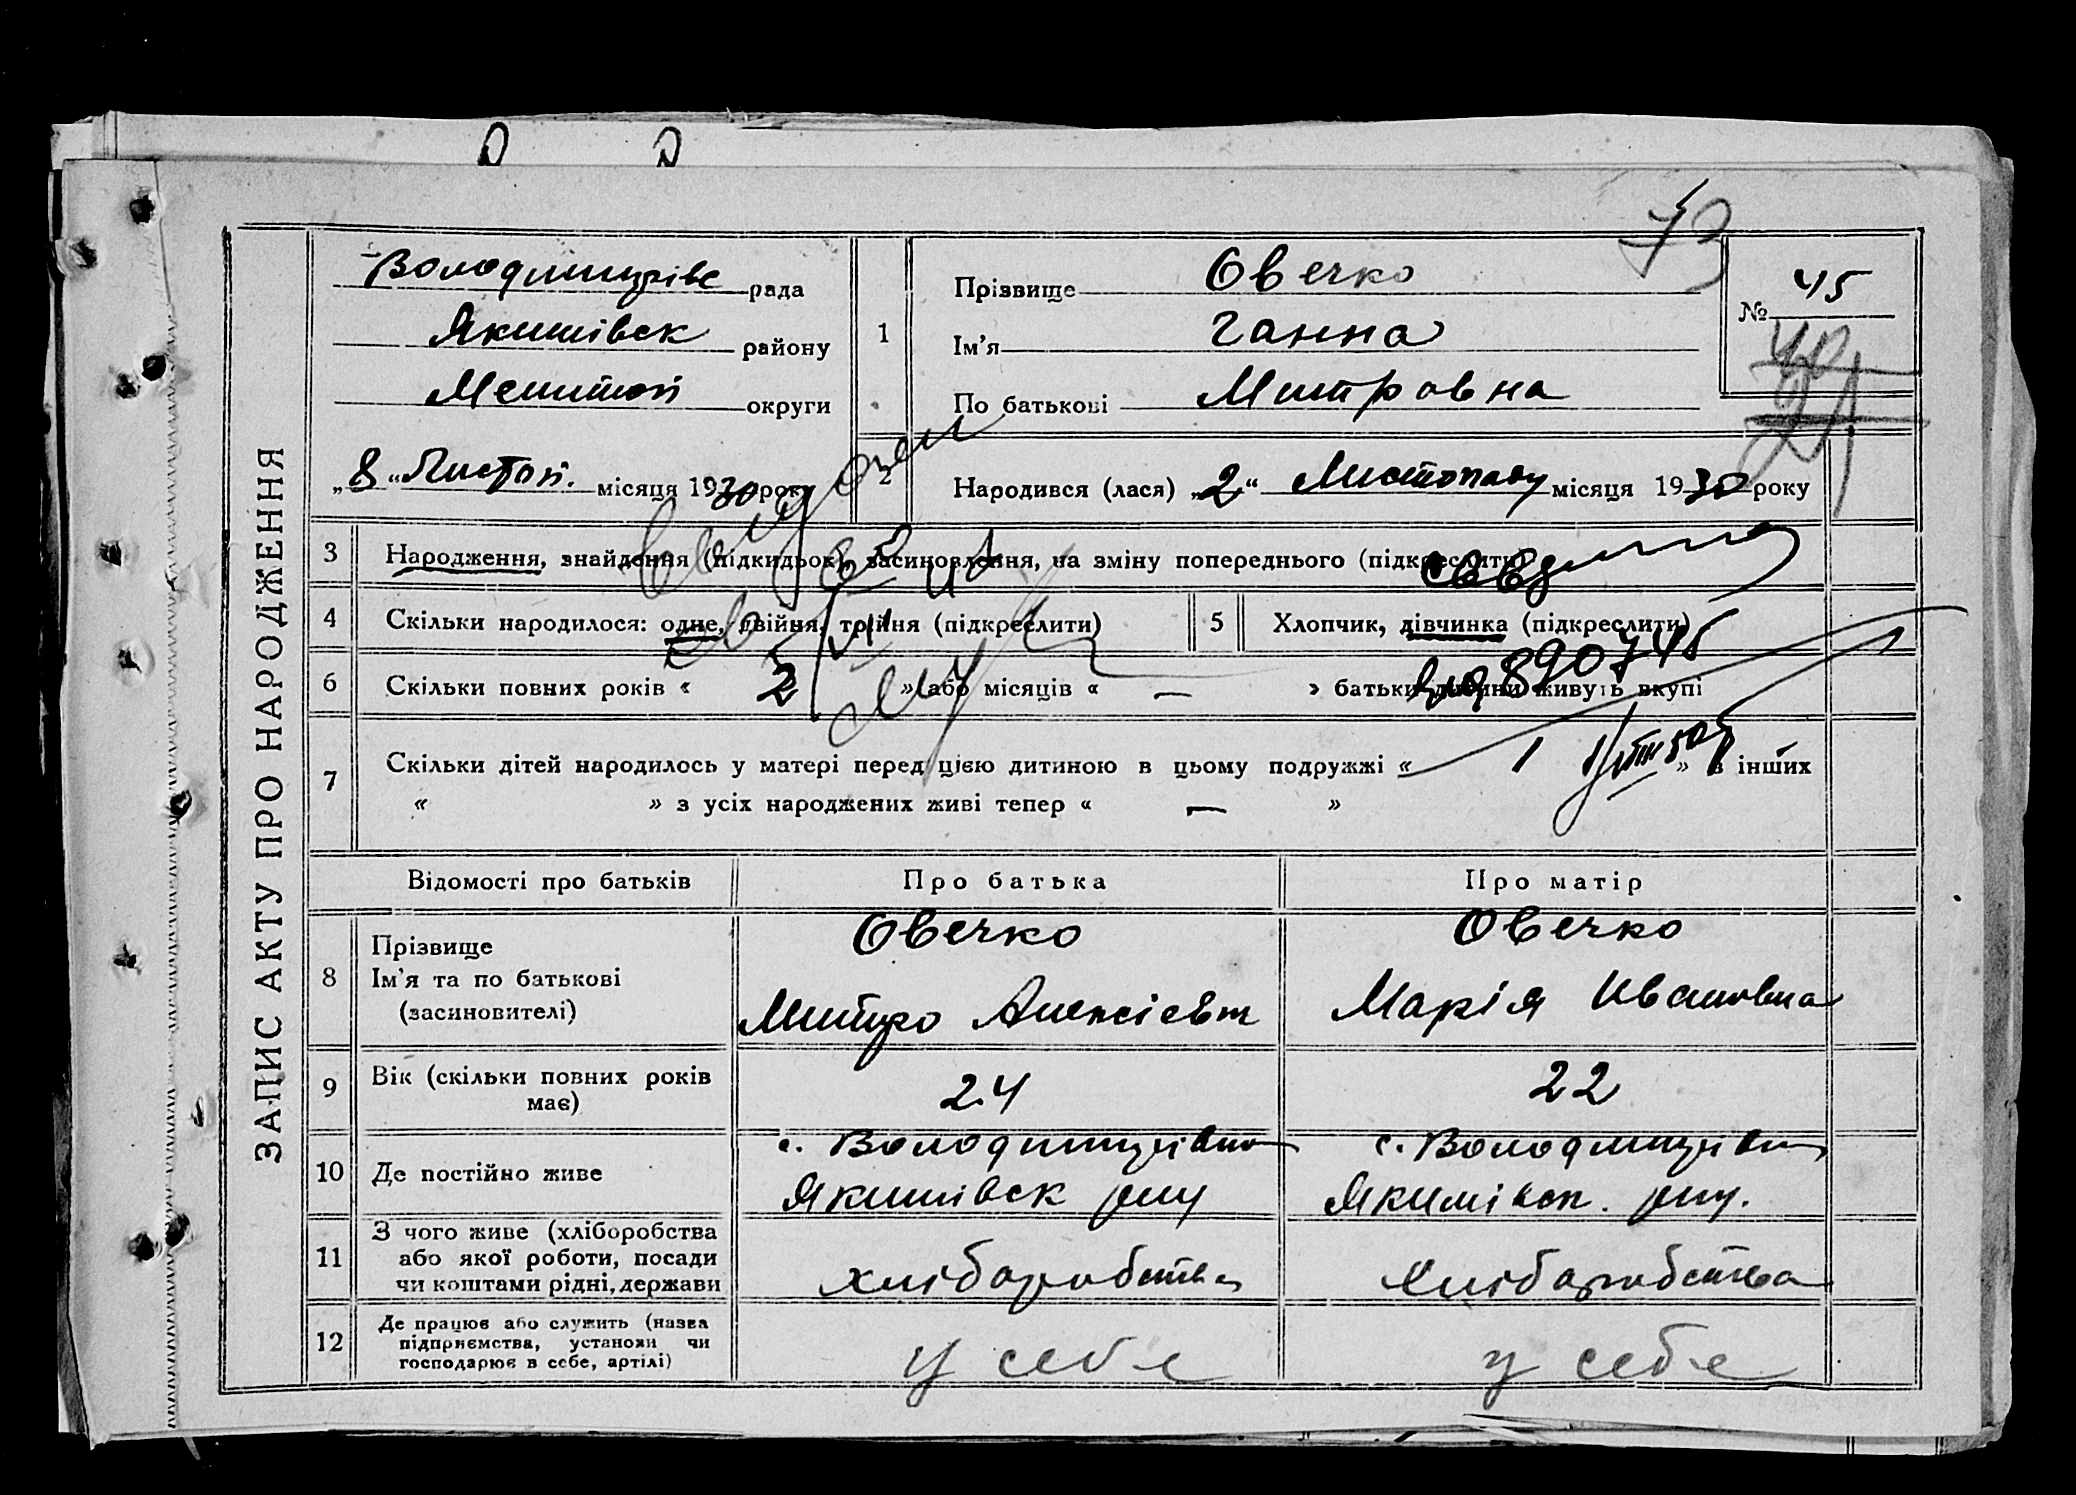 ЗАПИС АКТУ ПРО НАРОДЖЕННЯ
73
Володимирівс рада
Якимівск району
Мелитоп округи
„8“ Листоп. місяця 1930 року
1
Прізвище Овечко
Ім'я Ганна
По батькові Митровна
№ 45
2
Народився (лася) „2“ Листопаду місяця 1930 року
3 Народження, знайдення (підкидьок), засиновлення, на зміну попереднього (підкреслити)
4 Скільки народилося: одне, двійня, трійня (підкреслити)
5 Хлопчик, дівчинка (підкреслити)
890745
6 Скільки повних років « 2 » або місяців « — » батьки дитини живуть вкупі
7 Скільки дітей народилось у матері перед цією дитиною в цьому подружжі « 1 » в інших
« » з усіх народжених живі тепер « — »
Відомості про батьків Про батька Про матір
8 Прізвище
Ім'я та по батькові
(засиновителі)
Овечко
Митро Алексієвич
Овечко
Марія Ивановна
9 Вік (скільки повних років
має)
24
22
10 Де постійно живе
с. Володимирівка
Якимівск рну
с. Володимирівка
Якимівск. рну.
11 З чого живе (хліборобства
або якої роботи, посади
чи коштами рідні, держави
хліборобства
Хліборобства
12 Де працює або служить (назва
підприємства, установи чи
господарює в себе, артілі)
у себе
у себе